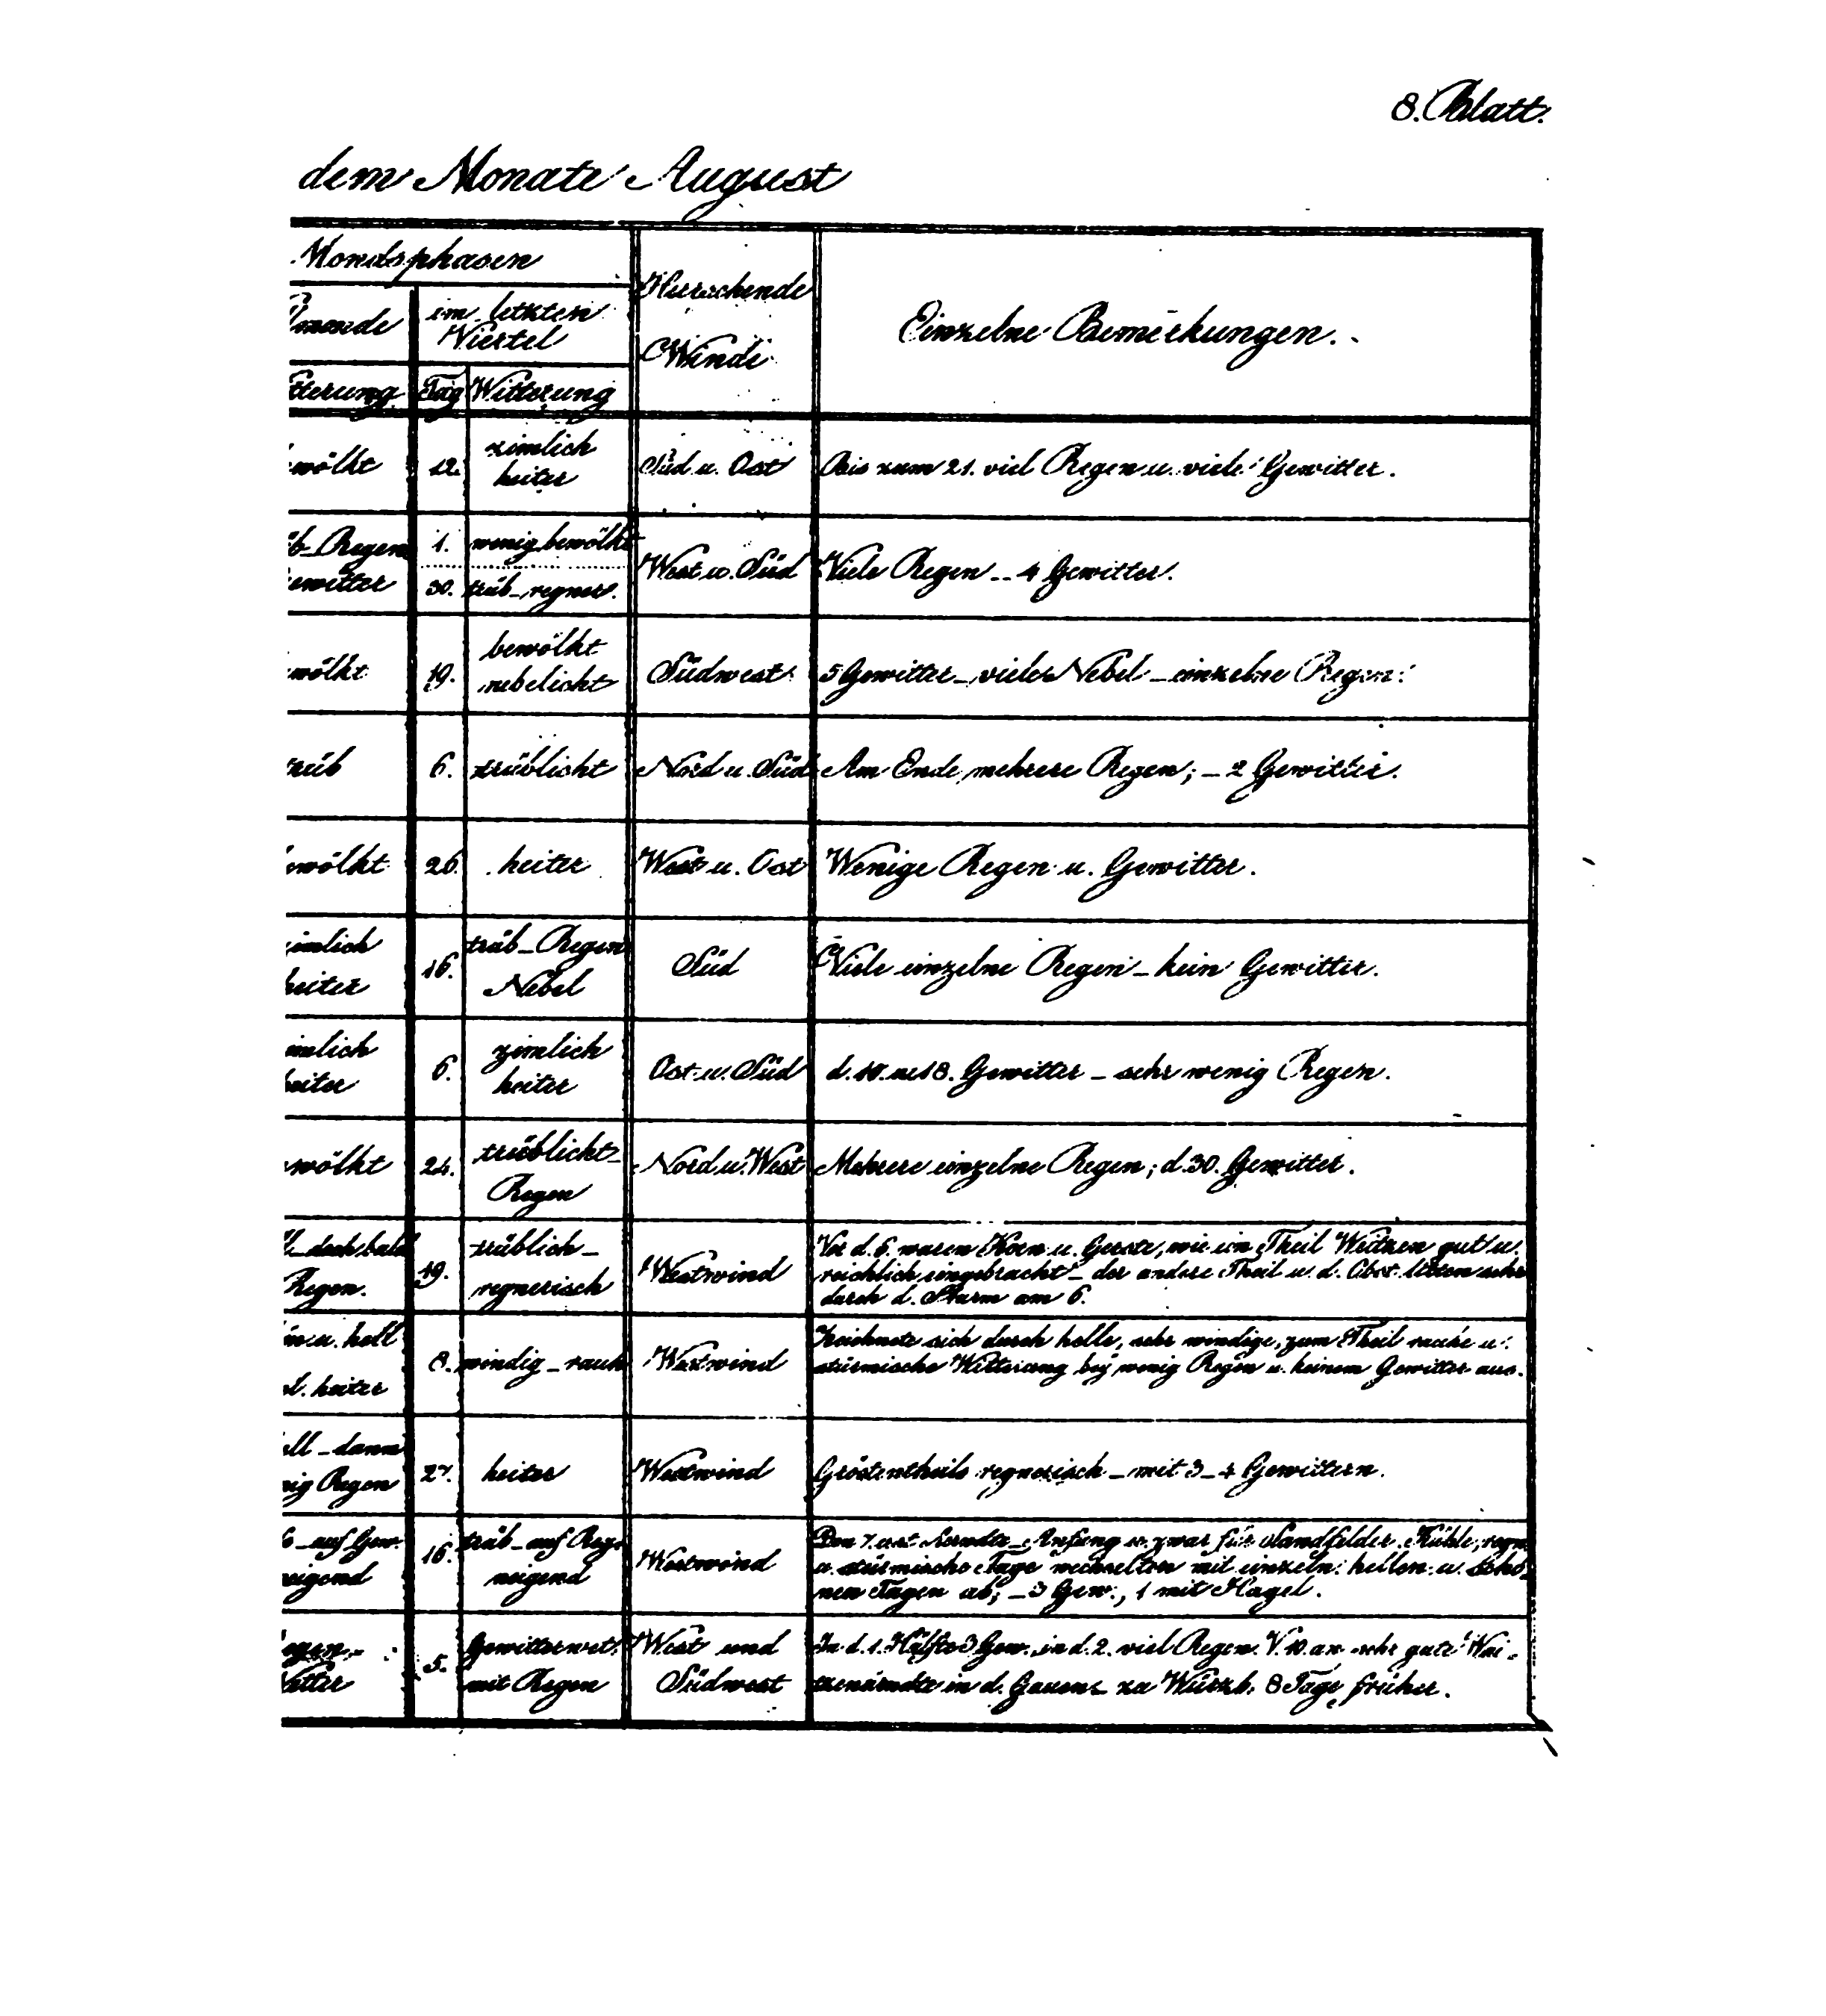 8. Blatt.
dem Monate August
Mondsphasen
lmonde
im letzten
Viertel
Herrschende
Winde
Einzelne Bemerkungen.
tterung Tag Witterung
ewölkt 12. zimlich
heiter
Süd u. Ost Bis zum 21. viel Regen u. viele Gewitter.
üb_Regen 1. wenig bewölkt
ewitter 30. trüb_regner.
West u. Süd Viele Regen _ 4 Gewitter.
wölkt 19. bewölkt
nebelicht
Südwest 5 Gewitter_vieler Nebel_einzelne Regen.
rüb 6. trüblicht Nord u. Süd Am Ende mehrere Regen; _ 2 Gewitter.
ewölkt 26. heiter West u. Ost Wenige Regen u. Gewitter.
imlich
heiter
16. trüb_Regen
Nebel
Süd Viele einzelne Regen_kein Gewitter.
imlich
heiter
6. zimlich
heiter
Ost u. Süd d. 10. u. 18. Gewitter_sehr wenig Regen.
wölkt 24. trüblicht_
Regen
Nord u. West Mehrere einzelne Regen; d. 30. Gewitter.
ll_doch bald
Regen.
19. trüblich_
regnerisch
Westwind
Vor d. 6. waren Korn u. Gerste, wie ein Theil Weitzen gut u.
reichlich eingebracht_der andere Theil u. d. Obst litten sehr
durch d. Sturm am 6.
ön u. hell
d. heiter
8. windig_rauh Westwind
Zeichnete sich durch helle, sehr windige, zum Theil rauhe u.
stürmische Witterung bey wenig Regen u. keinem Gewitter aus.
ell_dann
nig Regen
27. heiter Westwind Gröstentheils regnerisch_mit 3_4 Gewittern.
b_auf Gew.
neigend
16. trüb_auf Reg.
neigend
Westwind
Den 7. erst Aerndte_Anfang u. zwar für Sandfelder. Kühle, regn.
u. stürmische Tage wechselten mit einzeln. hellen u. schö_
nen Tagen ab; _3 Gew., 1 mit Hagel.
egen
etter
5. Gewitterwet.
mit Regen
West und
Südwest
In d. 1. Hälfte 3 Gew., in d. 2. viel Regen. V. 10. an sehr gute Wai_
tzenärndte in d. Gauen_ zu Würzb. 8 Tage früher.